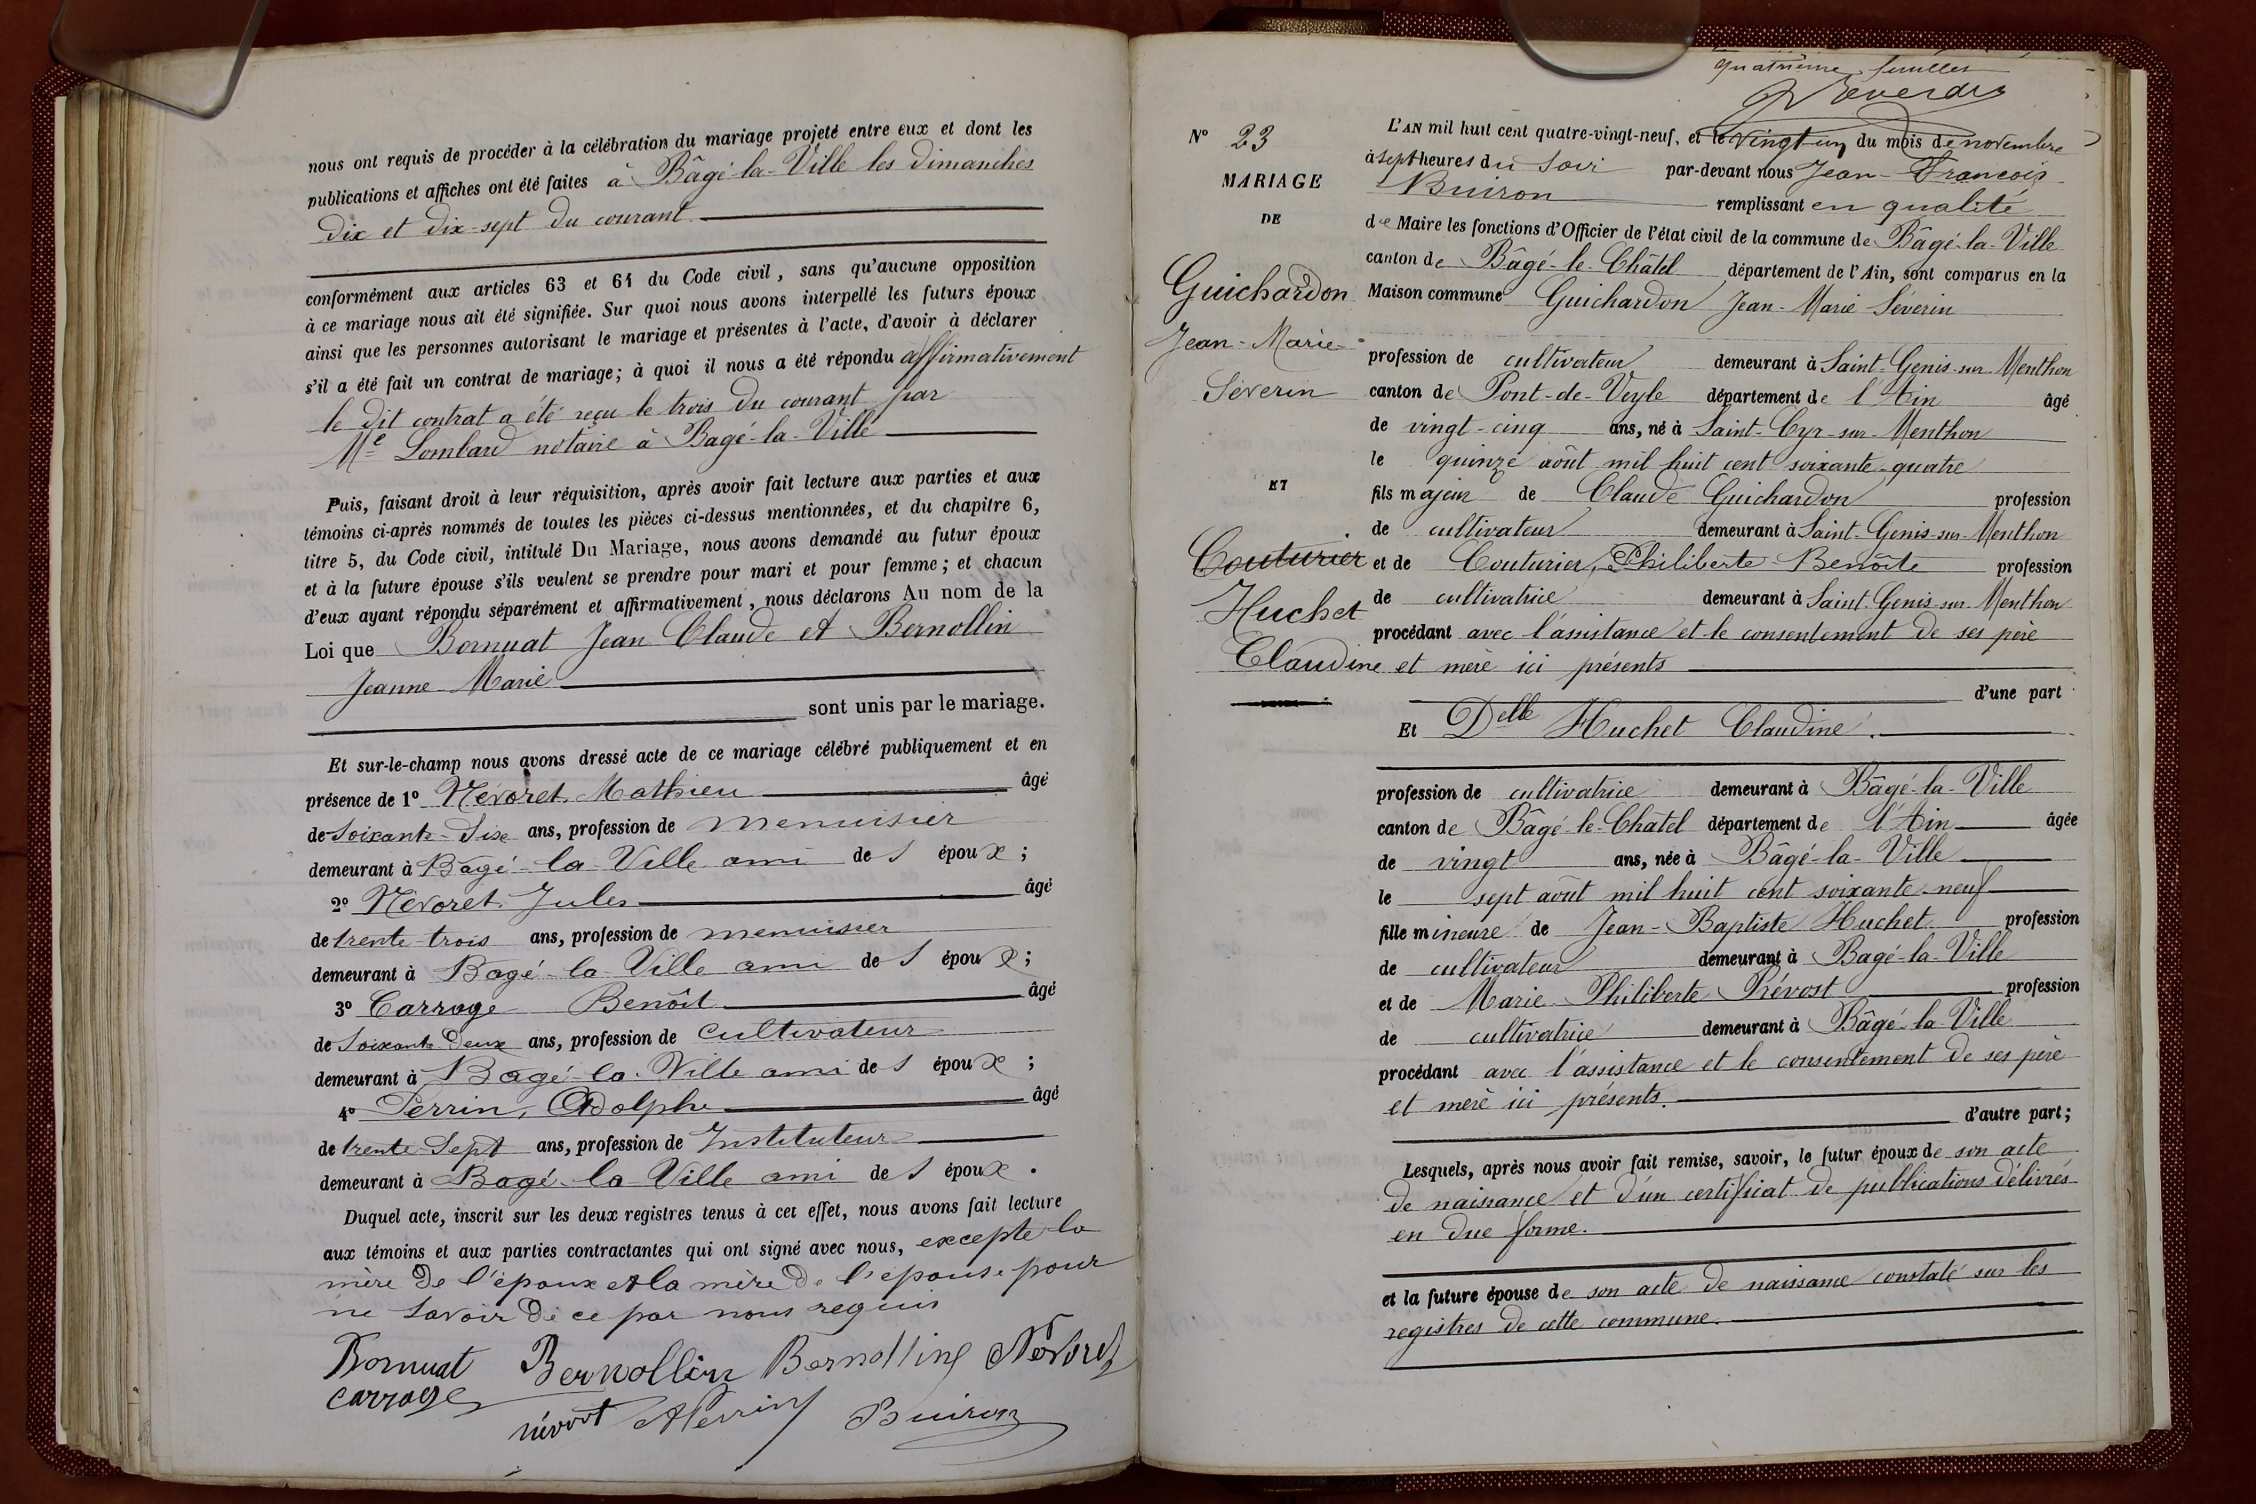 nous ont requis de procéder à la célébration du mariage projeté entre eux et dont les
publications et affiches ont été faites à Bâgé-la-Ville les dimanches
dix et dix-sept du courant
conformément aux articles 63 et 64 du Code civil, sans qu'aucune opposition
à ce mariage nous ait été signifiée. Sur quoi nous avons interpellé les futurs époux
ainsi que les personnes autorisant le mariage et présentes à l'acte, d'avoir à déclarer
s'il a été fait un contrat de mariage; à quoi il nous a été répondu affirmativement
le dit contrat a été reçu le trois du courant par
Me Lombard notaire à Bagé-la-Ville
Puis, faisant droit à leur réquisition, après avoir fait lecture aux parties et aux
témoins ci-après nommés de toutes les pièces ci-dessus mentionnées, et du chapitre 6,
titre 5, du Code civil, intitulé Du Mariage, nous avons demandé au futur époux
et à la future épouse s'ils veulent se prendre pour mari et pour femme; et chacun
d'eux ayant répondu séparément et affirmativement, nous déclarons Au nom de la
Loi que Bornuat Jean Claude et Bernollin
Jeanne-Marie
sont unis par le mariage.
Et sur-le-champ nous avons dressé acte de ce mariage célébré publiquement et en
présence de 1º Névoret Mathieu âgé
de soixante-dix ans, profession de menuisier
demeurant à Bagé-la-Ville ami des époux;
2º Névoret Jules âgé
de trente trois ans, profession de menuisier
demeurant à Bagé-la-Ville ami des époux;
3º Carruge Benôit âgé
de Soixante-Deux ans, profession de cultivateur
demeurant à Bagé-la-Ville ami des époux;
4º Perrin, Adolphe âgé
de trente-Sept ans, profession de Instituteur
demeurant à Bagé-la-Ville ami des époux.
Duquel acte, inscrit sur les deux registres tenus à cet effet, nous avons fait lecture
aux témoins et aux parties contractantes qui ont signé avec nous, excepté la
mère de l'époux et la mère de l'épouse pour
ne savoir de ce par nous requis
Bornuat Bernollin Bernollin Névoret
Carruge
névoret APerrin Buiron
quatrième feuillet
Nº 23
MARIAGE
DE
Guichardon
Jean-Marie-
Séverin
ET
Couturier
Huchet
Claudine
L'AN mil huit cent quatre-vingt-neuf, et le vingt-un du mois de novembre
à sept heures du soir par-devant nous Jean-François
Buiron remplissant en qualité
de Maire les fonctions d'Officier de l'état civil de la commune de Bâgé-la-Ville
canton de Bâgé-le-Châtel département de l'Ain, sont comparus en la
Maison commune Guichardon Jean-Marie Séverin
profession de cultivateur demeurant à Saint-Genis-sur-Menthon
canton de Pont-de-Veyle département de l'Ain âgé
de vingt-cinq ans, né à Saint-Cyr-sur-Menthon
le quinze août mil huit cent soixante-quatre
fils majeur de Claude Guichardon profession
de cultivateur demeurant à Saint-Genis-sur-Menthon
et de Couturier, Philiberte Benôite profession
de cultivatrice demeurant à Saint-Genis-sur-Menthon
procédant avec l'assistance et le consentement de ses père
et mère ici présents
d'une part
Et Delle Huchet Claudine.
profession de cultivatrice demeurant à Bâgé-la-Ville
canton de Bâgé-le-Châtel département de l'Ain âgée
de vingt ans, née à Bâgé-la-Ville
le sept août mil huit cent soixante-neuf
fille mineure de Jean-Baptiste Huchet profession
de cultivateur demeurant à Bagé-la-Ville
et de Marie Philiberte Prévost profession
de cultivatrice demeurant à Bâgé-la-Ville
procédant avec l'assistance et le consentement de ses père
et mère ici présents.
d'autre part;
Lesquels, après nous avoir fait remise, savoir, le futur époux de son acte
de naissance et d'un certificat de publications délivrés
en due forme.
et la future épouse de son acte de naissance constaté sur les
registres de cette commune.